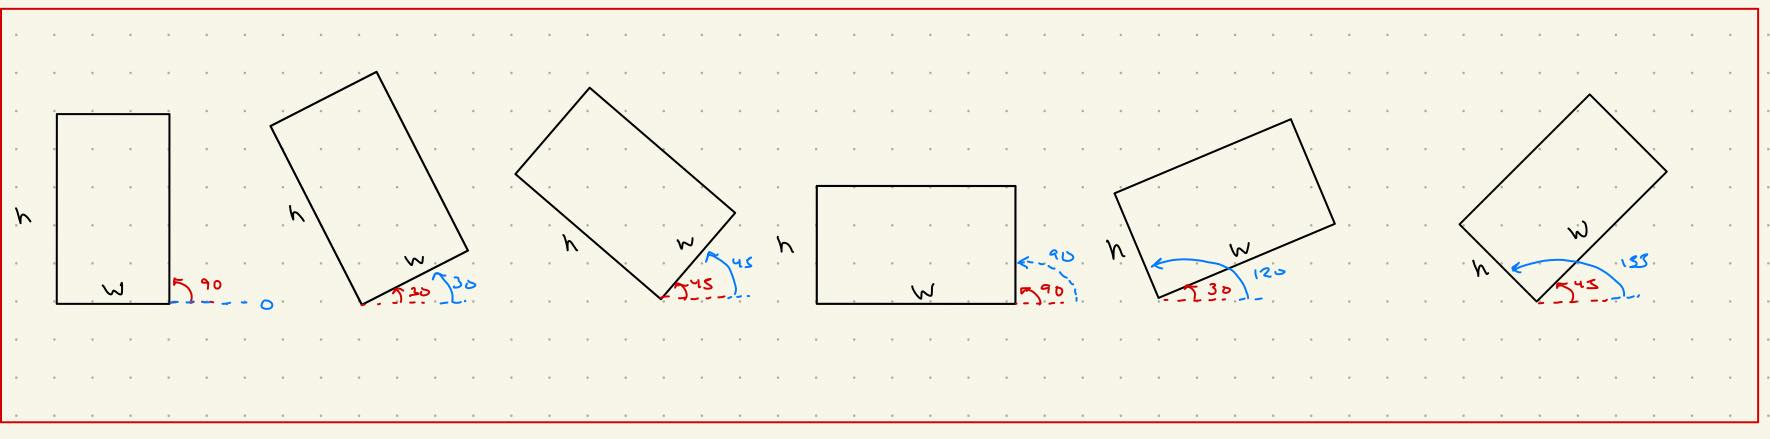 h
w
90
0
h
w
30
30
h
w
45
45
h
w
90
90
h
w
30
120
h
w
45
135